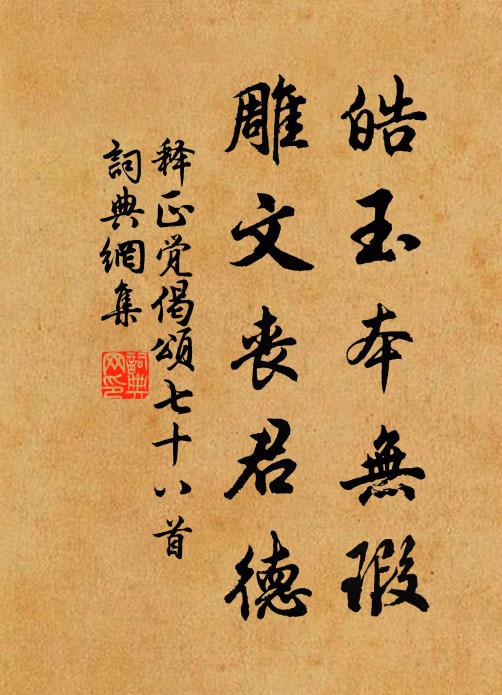 皓玉本無瑕
雕文丧君德
释正觉偈頌七十八首
詞典網集
詞典
网印